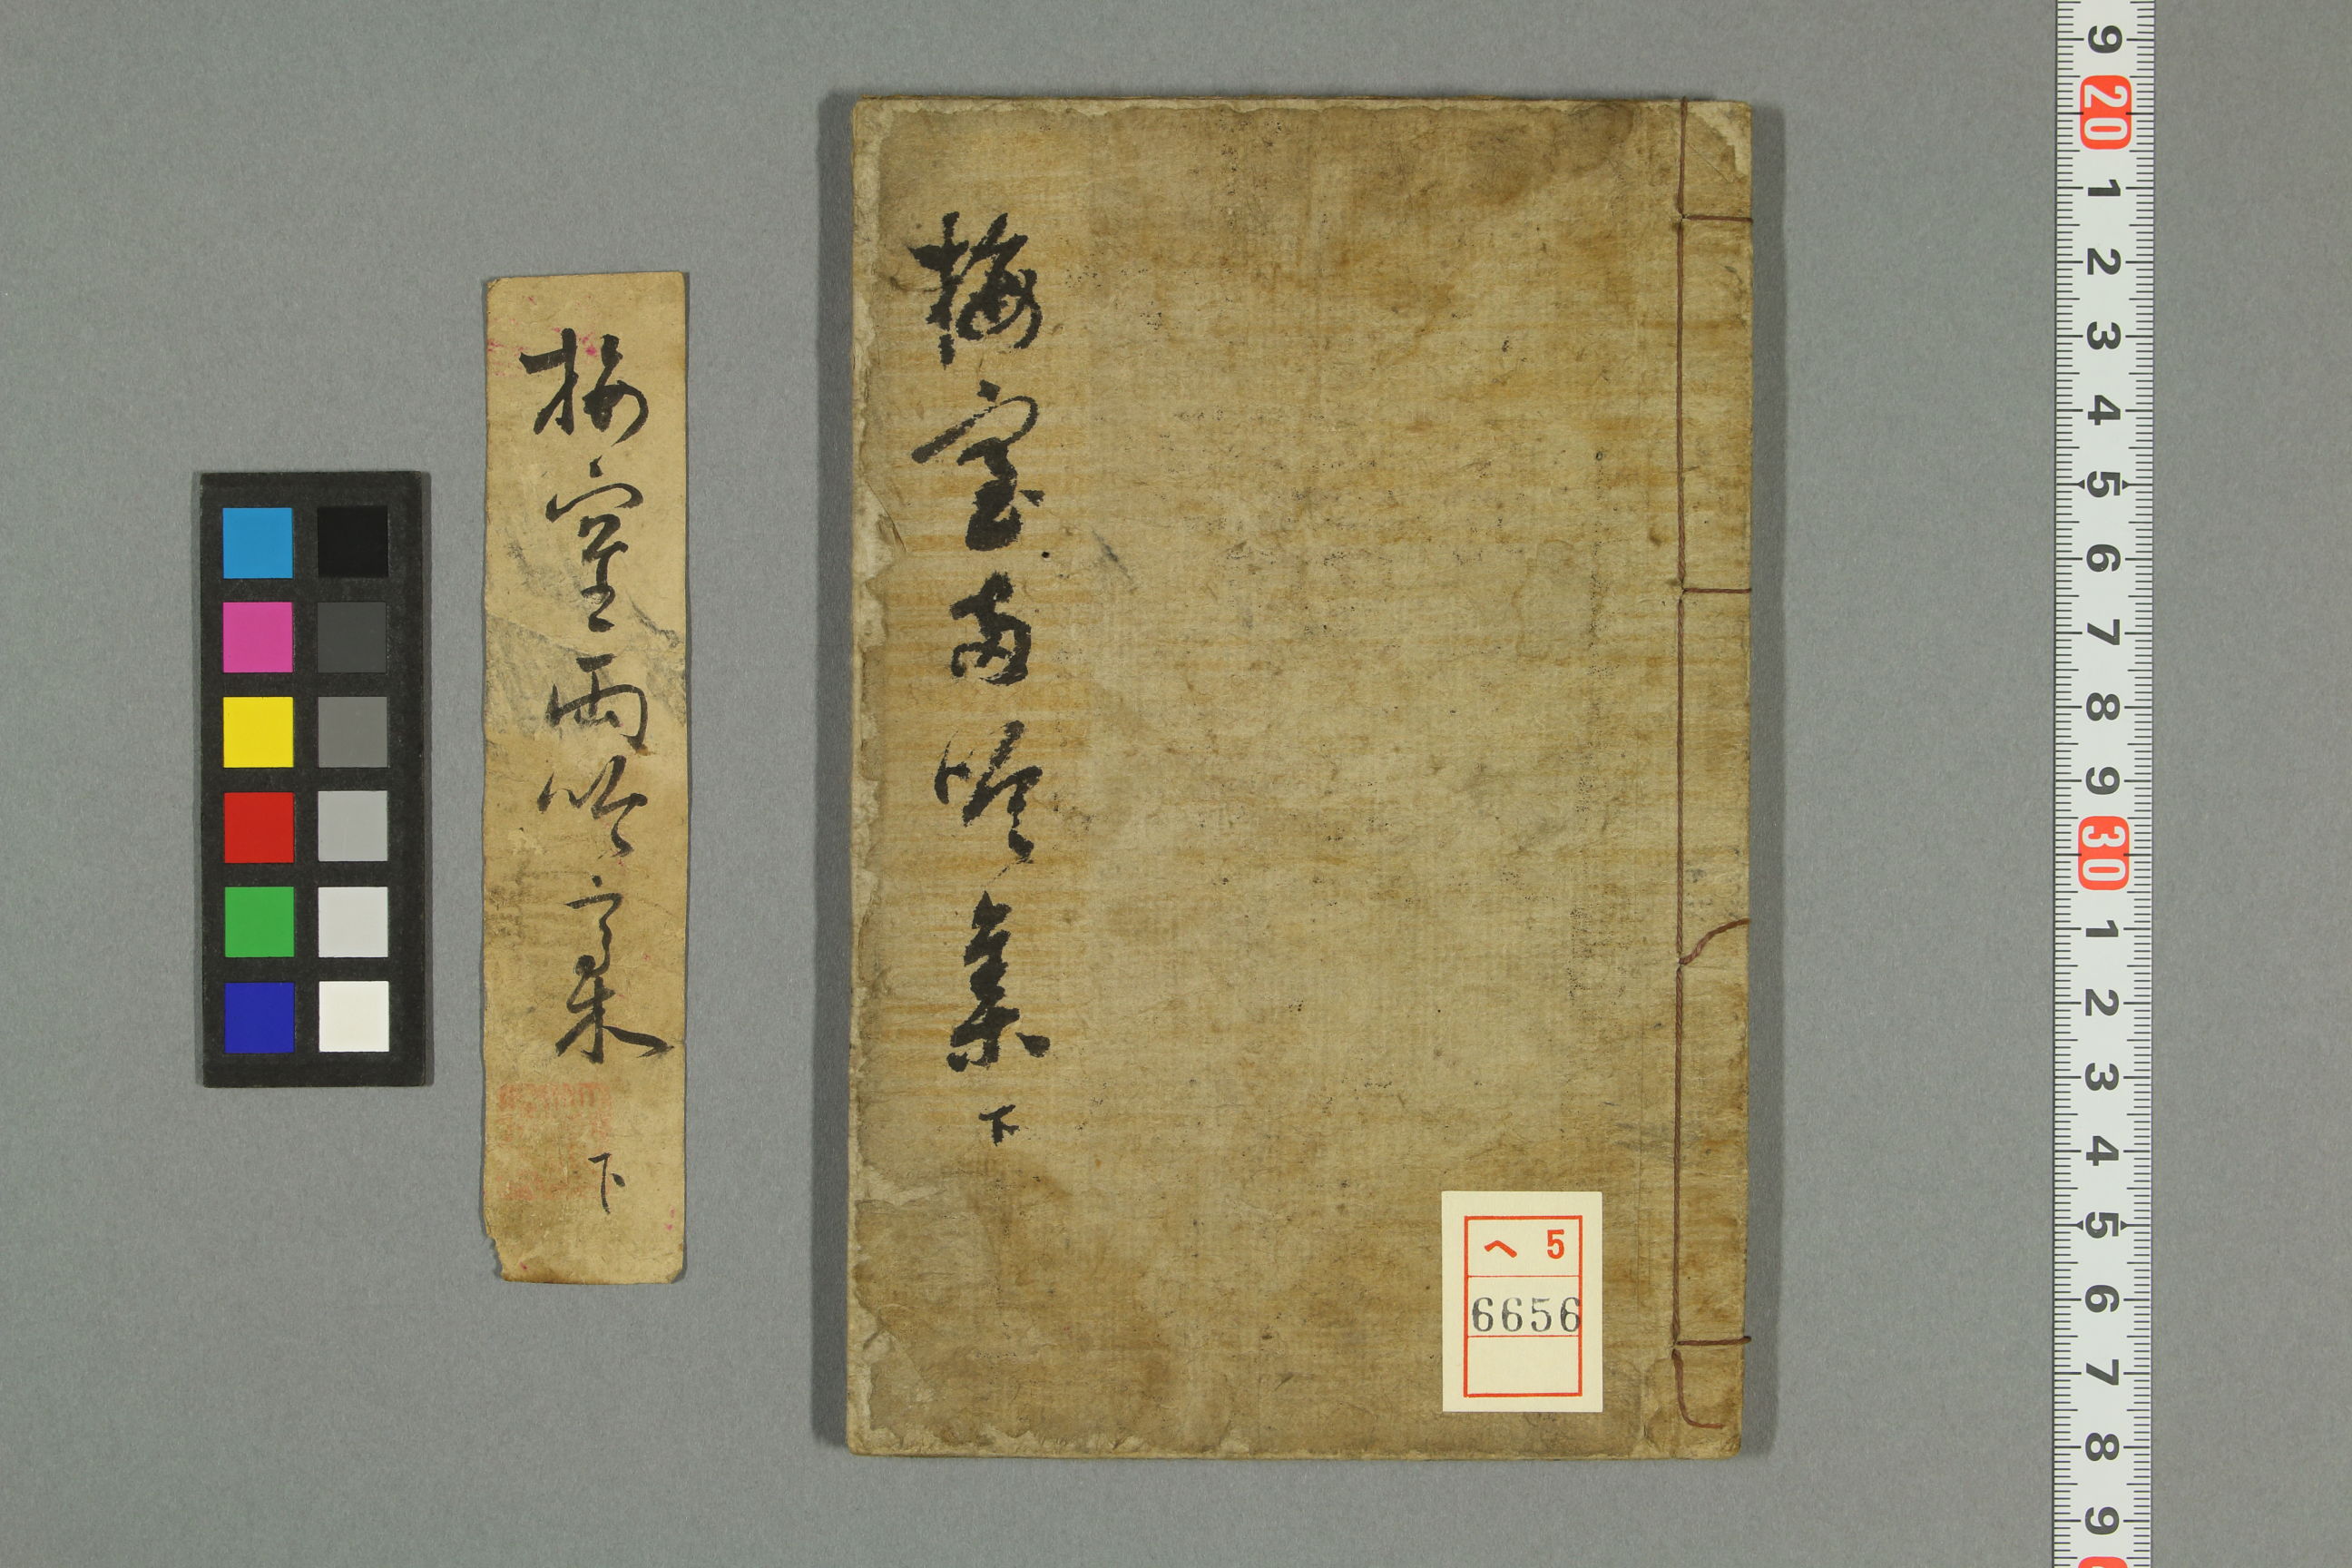 梅室両吟稾 下
梅室両吟集 下
ヘ 5
6656
9
20
1
2
3
4
5
6
7
8
9
30
1
2
3
4
5
6
7
8
9